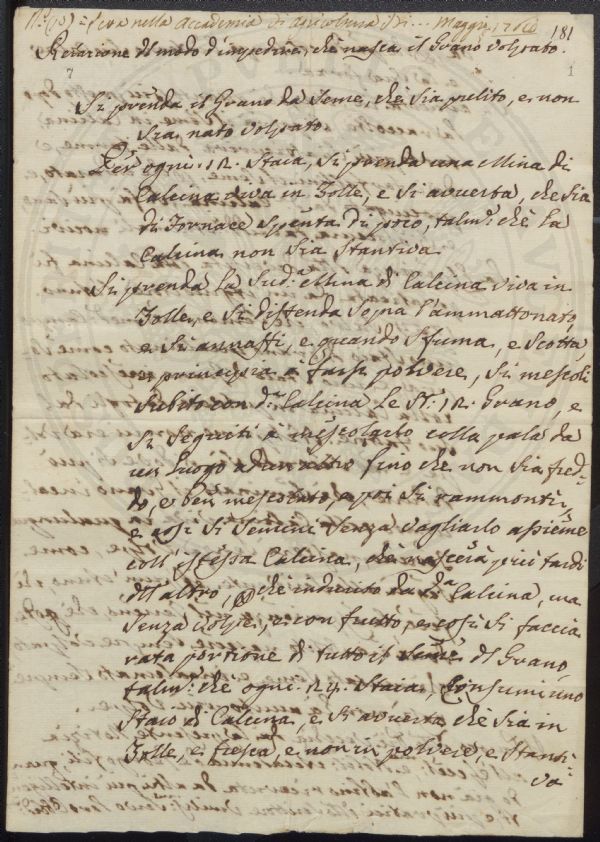 nella Accademia di Agricoltura
181
Relazione del modo d'impedire, che nasca il Grano Volpato.
7
1
Si prenda il Grano da Seme, che sia pulito, e non
sia nato Volpato.
Per ogni 12. Staia, si prenda una Mina di
Calcina viva in Zolle, e si avverta, che sia
di Fornace spenta di poco, talm.e che la
Calcina non sia stantiva.
Si prenda la Sud.a Mina di Calcina viva in
Zolle, e si distenda sopra l'ammattonato,
e si annaffi, e quando sfuma, e scotta,
e principia a farsi polvere, si mescoli
subito con d.a Calcina le St. 12. Grano, e
si seguiti a mescolarlo colla pala da
un luogo ad un altro fino che non sia fred-
do, e ben mescolato, e poi si rammonti,
e così si semini senza vagliarlo assieme
coll'istessa Calcina, che nascerà più tardi
dell'altro, che indurito da d.a Calcina, ma
senza Volpe, e con frutto, e così si faccia
rata porzione di tutto il Seme del Grano,
talm.e che ogni 24. Staia, Consumi uno
Staio di Calcina, e si avverta che sia in
Zolle, e fresca, e non in polvere, e Stanti-
va